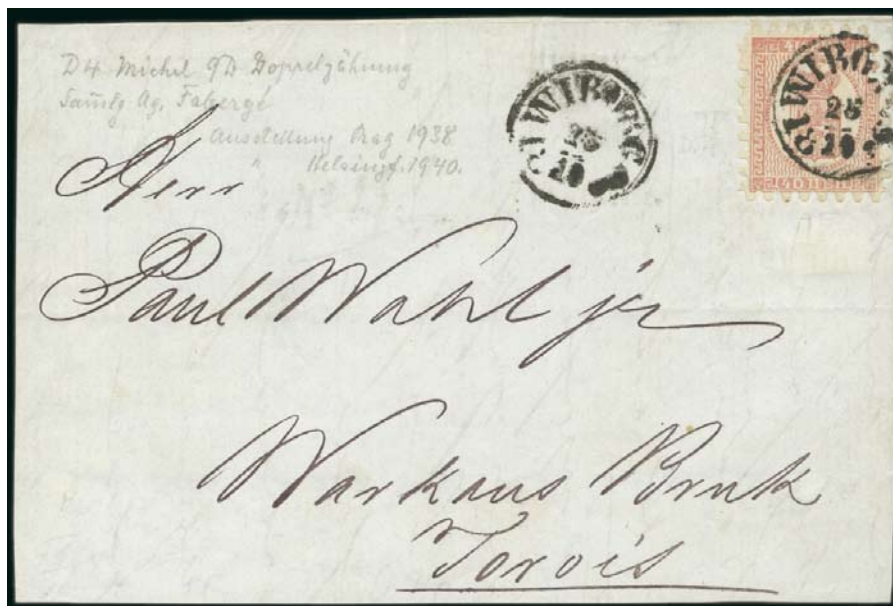 D4 Michel 9D Doppelzähnung
Samlg Ag. Fabergé
Ausstellung Prag 1938
" Helsingf. 1940.
WIBORG
25
10
WIBORG
25
10
40 PEN
Herr
Paul Wahl jr
Warkaus Bruk
Jorois